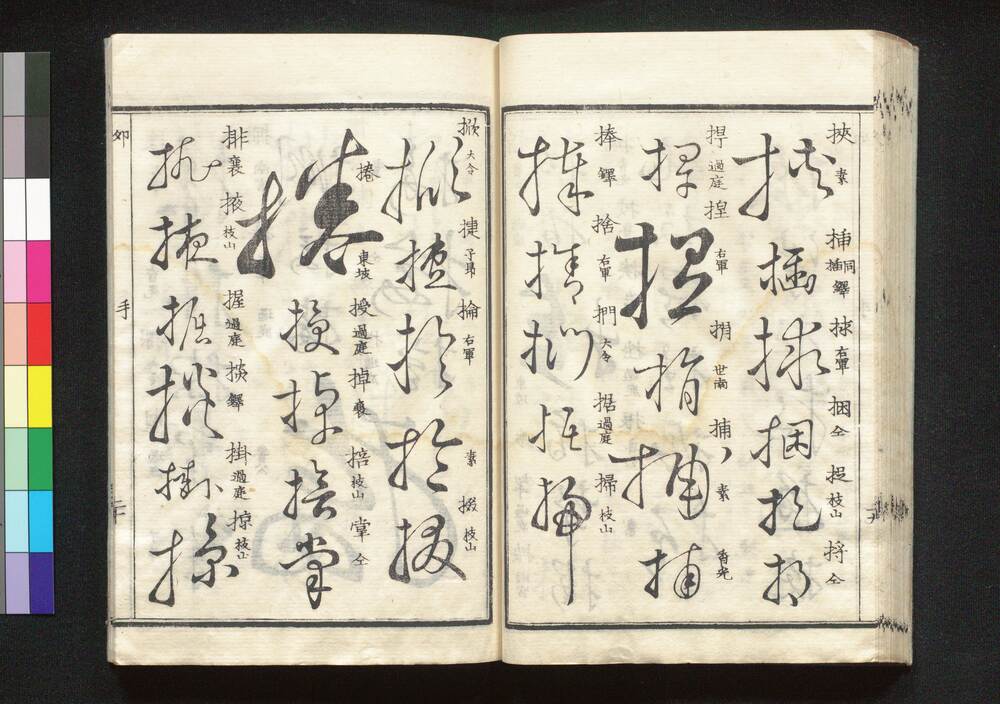 挾 素 挿 同 插 鐸 捄 右軍 捆 仝 捉 枝山 捋 仝
捍 過庭 揑 右軍 捐 世南 捕 素 香光
捧 鐸 捨 右軍 捫 大令 据 過庭 掃 枝山
掀 大令 捷 子昂 掄 右軍 素 掇 枝山
捲 東坡 授 過庭 掉 襄 掊 枝山 掌 仝
排 襄 掖 枝山 握 過庭 掞 鐸 掛 過庭 掠 枝山
卯
手